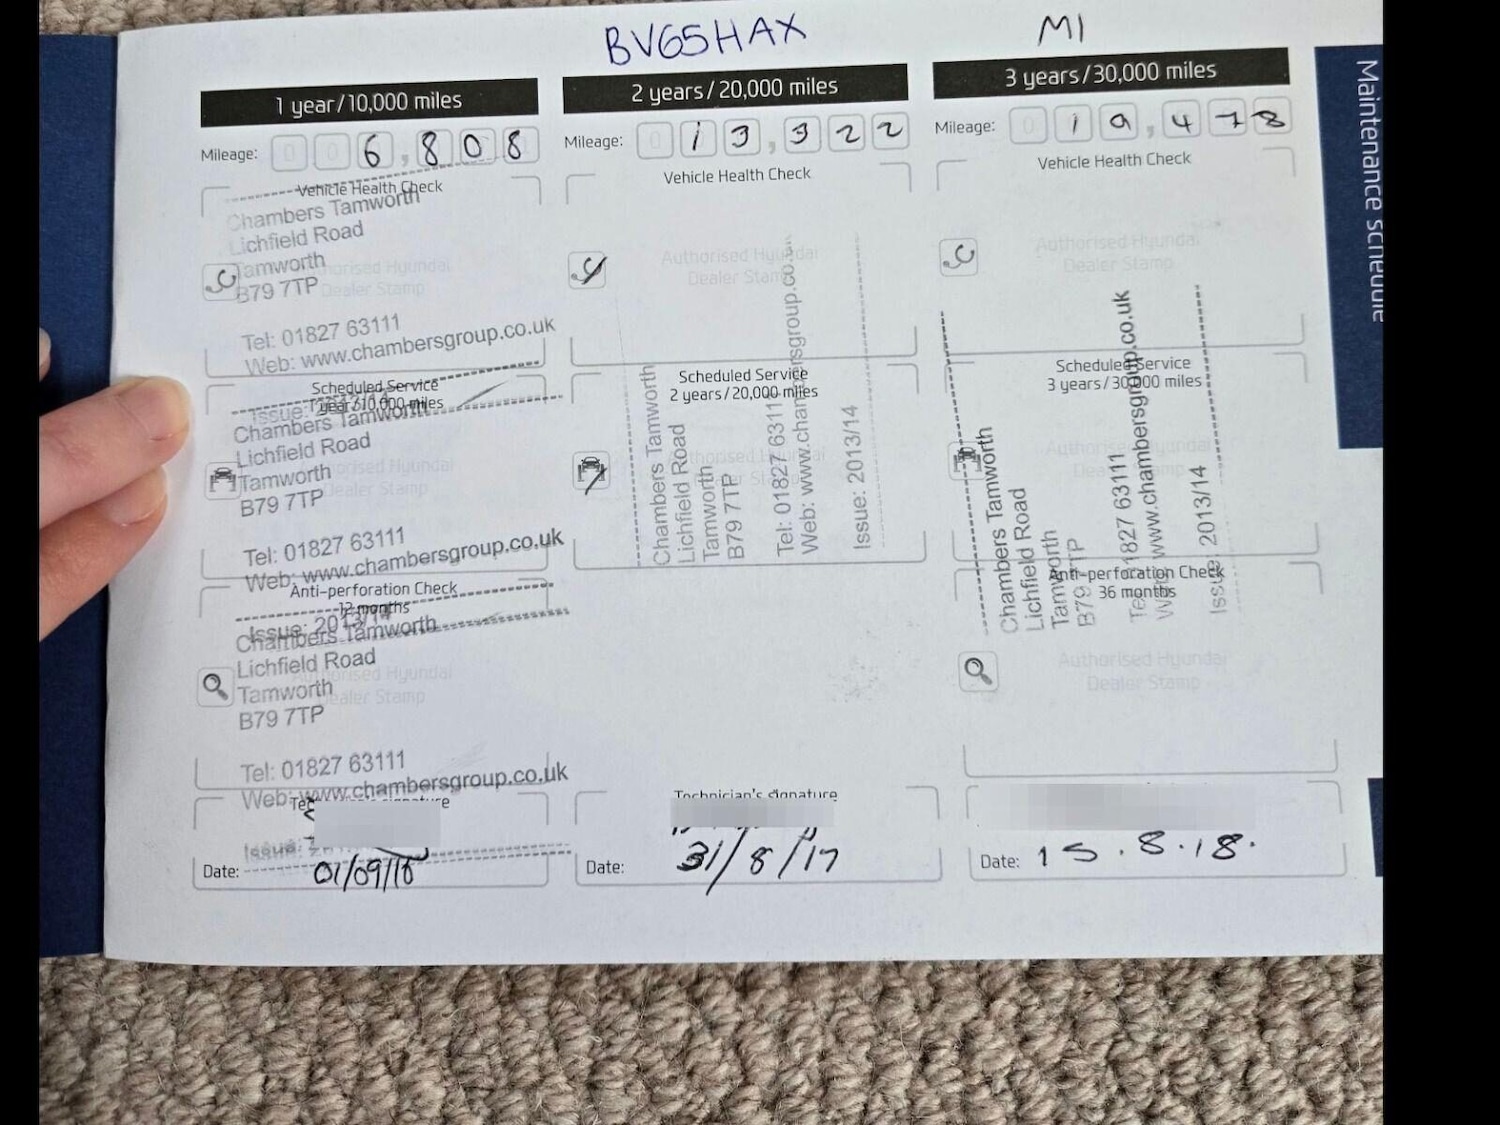 BV65HAX
MI
1 year/10,000 miles
Mileage: 006,808
Vehicle Health Check
Chambers Tamworth
Lichfield Road
Tamworth
B79 7TP
Authorised Hyundai
Dealer Stamp
Tel: 01827 63111
Web: www.chambersgroup.co.uk
Scheduled Service
1 year/10,000 miles
Issue:
Chambers Tamworth
Lichfield Road
Tamworth
B79 7TP
Authorised Hyundai
Dealer Stamp
Tel: 01827 63111
Web: www.chambersgroup.co.uk
Anti-perforation Check
12 months
Issue: 2013/14
Chambers Tamworth
Lichfield Road
Tamworth
B79 7TP
Authorised Hyundai
Dealer Stamp
Tel: 01827 63111
Web: www.chambersgroup.co.uk
Issue:
Date: 01/09/16
2 years/20,000 miles
Mileage: 013,322
Vehicle Health Check
Authorised Hyundai
Dealer Stamp
Scheduled Service
2 years/20,000 miles
Authorised Hyundai
Chambers Tamworth
Lichfield Road
Tamworth
B79 7TP
Tel: 01827 63111
Web: www.chambersgroup.co.uk
Issue: 2013/14
Technician's signature
Date: 31/8/17
3 years/30,000 miles
Mileage: 019,478
Vehicle Health Check
Authorised Hyundai
Dealer Stamp
Scheduled Service
3 years/30,000 miles
Authorised Hyundai
Dealer Stamp
Chambers Tamworth
Lichfield Road
Tamworth
B79 7TP
Tel: 01827 63111
Web: www.chambersgroup.co.uk
Issue: 2013/14
Anti-perforation Check
36 months
Authorised Hyundai
Dealer Stamp
Date: 15.8.18.
Maintenance schedule